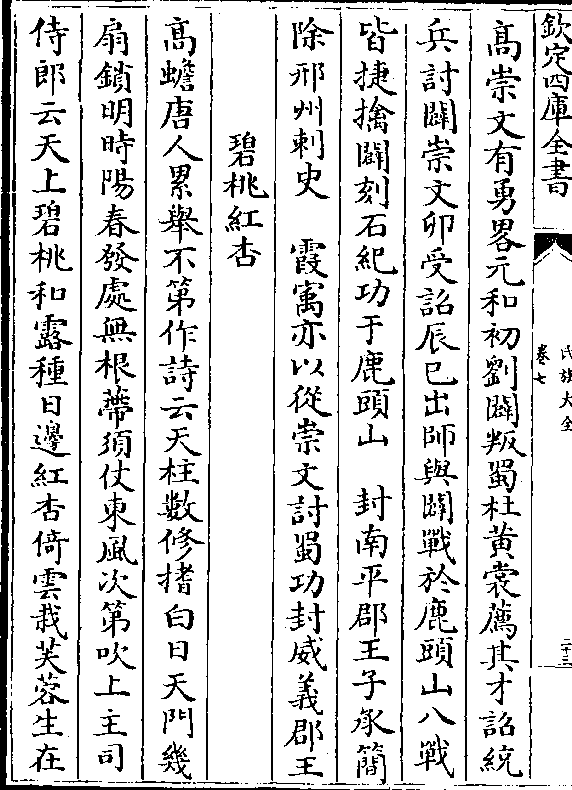 欽定四庫全書
氏族大全
卷七
二十三
髙崇文有勇畧元和初劉闢叛蜀杜黄裳薦其才詔統
兵討闢崇文卯受詔辰已出師與闢戰於鹿頭山八戰
皆捷擒闢刻石紀功于鹿頭山　封南平郡王子承簡
除邢州刺史　霞寓亦以從崇文討蜀功封威義郡王
碧桃紅杏
髙蟾唐人累舉不第作詩云天柱數修搘白日天門幾
扇鎖明時陽春發處無根蔕須仗東風次第吹上主司
侍郎云天上碧桃和露種日邊紅杏倚雲栽芙蓉生在